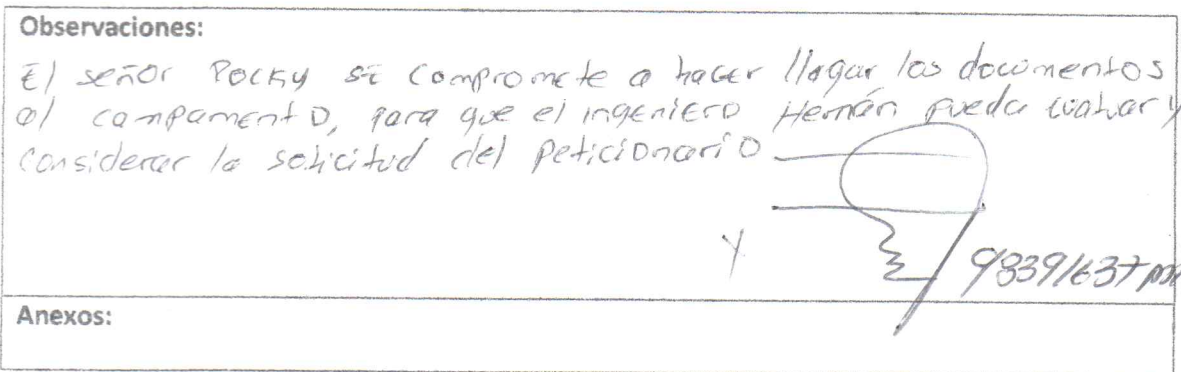 Observaciones:
El señor Pocky se compromete a hacer llegar los documentos
al campamento, para que el ingeniero Hernán pueda evaluar y
considerar la solicitud del peticionario
Y
98391637
Anexos: